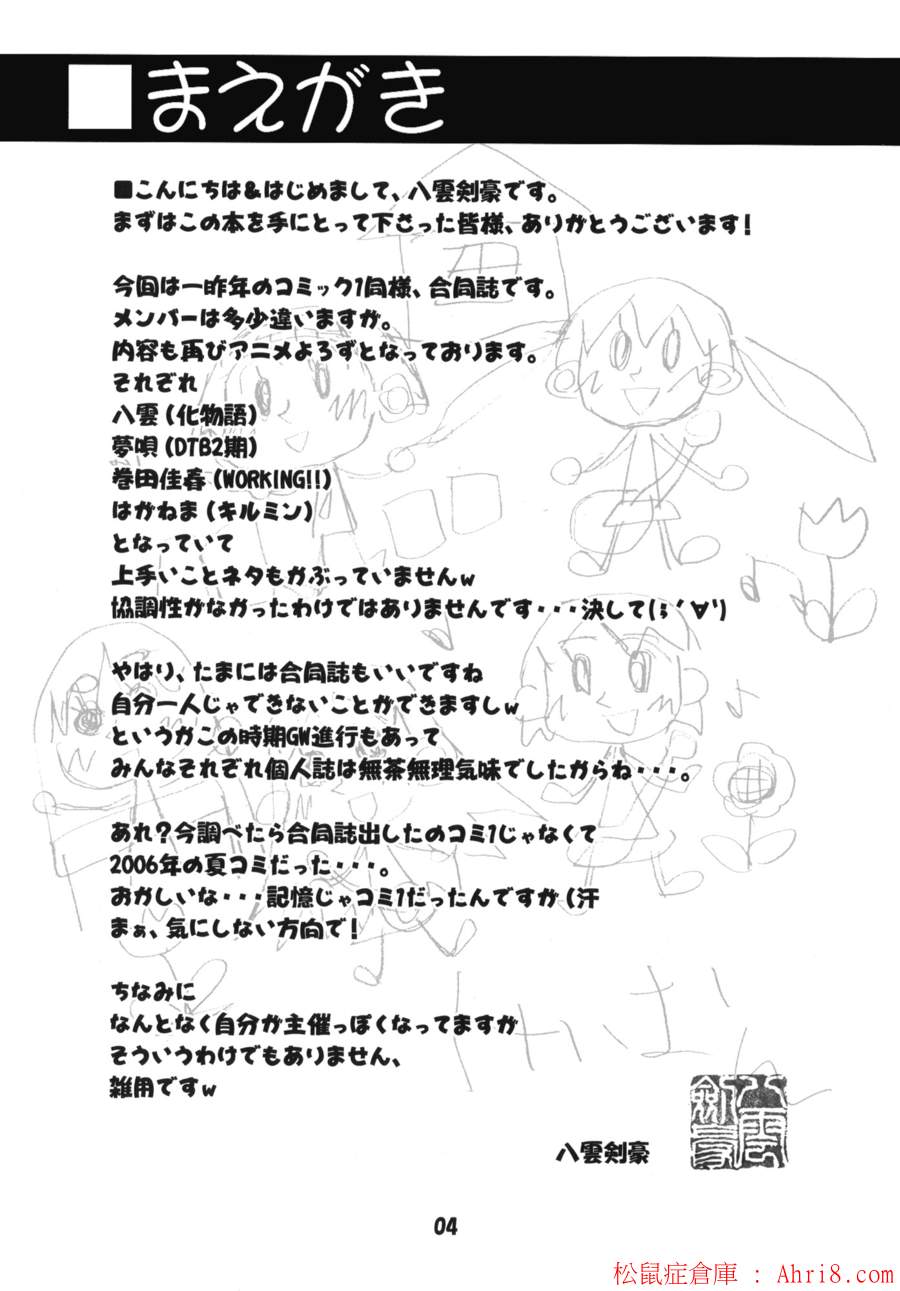 まえがき
■こんにちは&はじめまして、八雲剣豪です。
まずはこの本を手にとって下さった皆様、ありがとうございます!
今回は一昨年のコミック1同様、合同誌です。
メンバーは多少違いますが。
内容も再びアニメよろずとなっております。
それぞれ
八雲(化物語)
夢唄(DTB2期)
巻田佳春(WORKING!!)
はがねま(キルミン)
となっていて
上手いことネタもかぶっていませんw
協調性がなかったわけではありませんです・・・決して(;´∀`)
やはり、たまには合同誌もいいですね
自分一人じゃできないことができますしw
というかこの時期GW進行もあって
みんなそれぞれ個人誌は無茶無理気味でしたからね・・・。
あれ?今調べたら合同誌出したのコミ1じゃなくて
2006年の夏コミだった・・・。
おかしいな・・・記憶じゃコミ1だったんですが(汗
まぁ、気にしない方向で!
ちなみに
なんとなく自分が主催っぽくなってますが
そういうわけでもありません、
雑用ですw
けいおん
八雲剣豪
八雲剣豪
04
松鼠症倉庫 : Ahri8.com